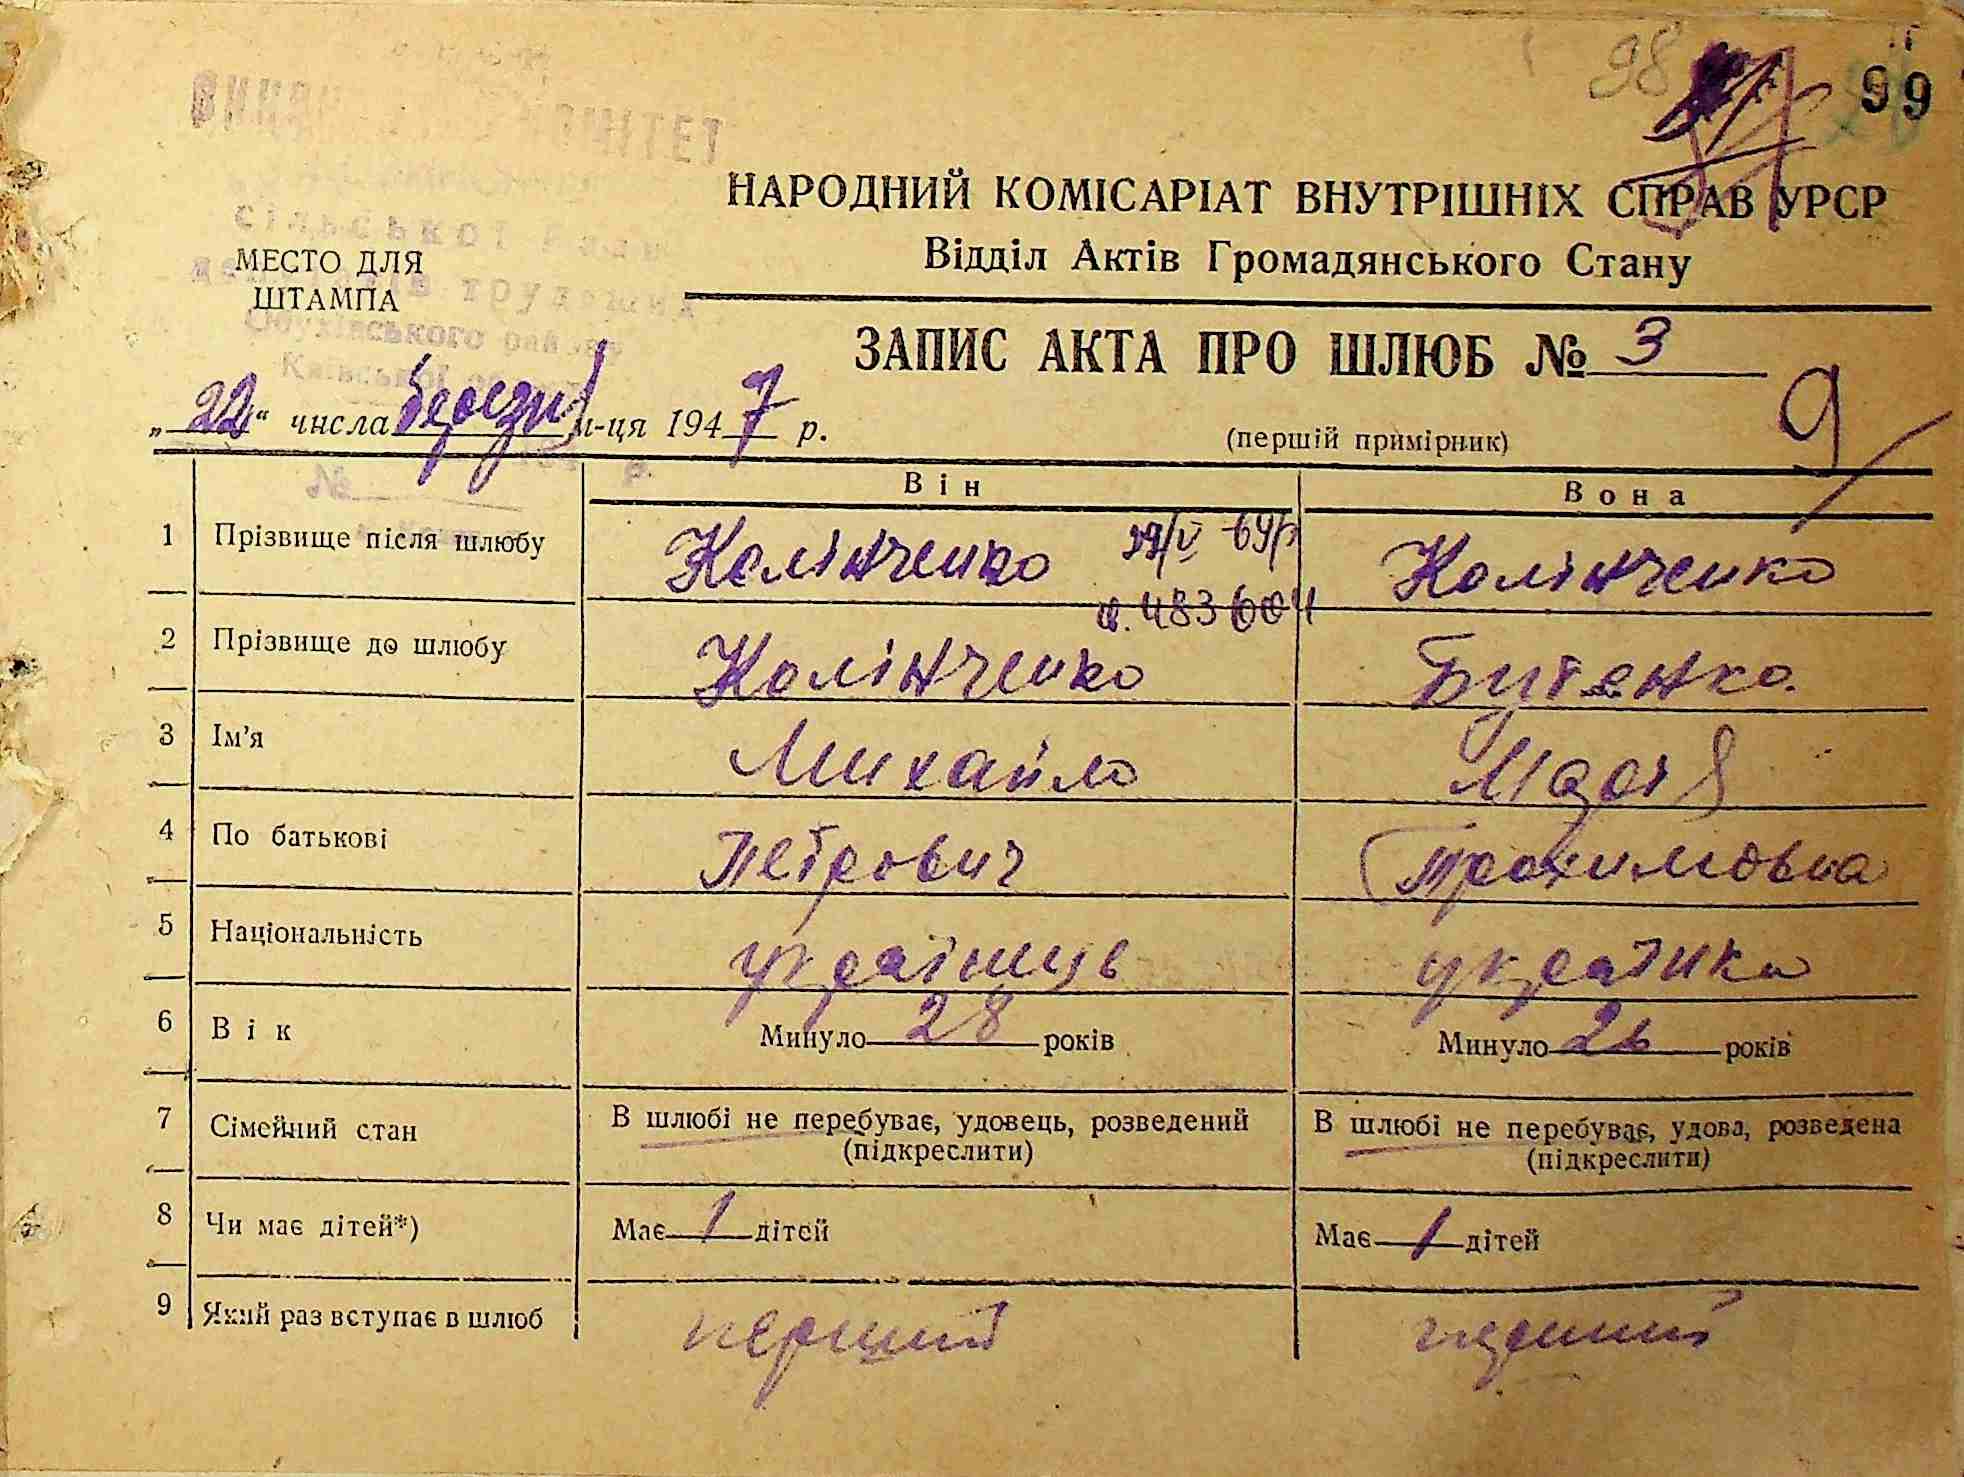 98
99
КОМІТЕТ
НАРОДНИЙ КОМІСАРІАТ ВНУТРІШНІХ СПРАВ УРСР
Відділ Актів Громадянського Стану
сільської Ради
МЕСТО ДЛЯ
ШТАМПА
трудящих
Обухівського району
Київської
ЗАПИС АКТА ПРО ШЛЮБ № 3
„22“ числа березня м-ця 1947 р.
(першій примірник)
9
№
Він
Вона
1 Прізвище після шлюбу Колінченко Колінченко
и. 483604
2 Прізвище до шлюбу Колінченко Бутенко.
3 Ім'я Михайло Марія
4 По батькові Петрович Трохимовна
5 Національність українець українка
6 Вік Минуло 28 років Минуло 26 років
7 Сімейний стан В шлюбі не перебуває, удовець, розведений В шлюбі не перебуває, удова, розведена
(підкреслити) (підкреслити)
8 Чи має дітей*) Має 1 дітей Має 1 дітей
9 Який раз вступає в шлюб перший перший